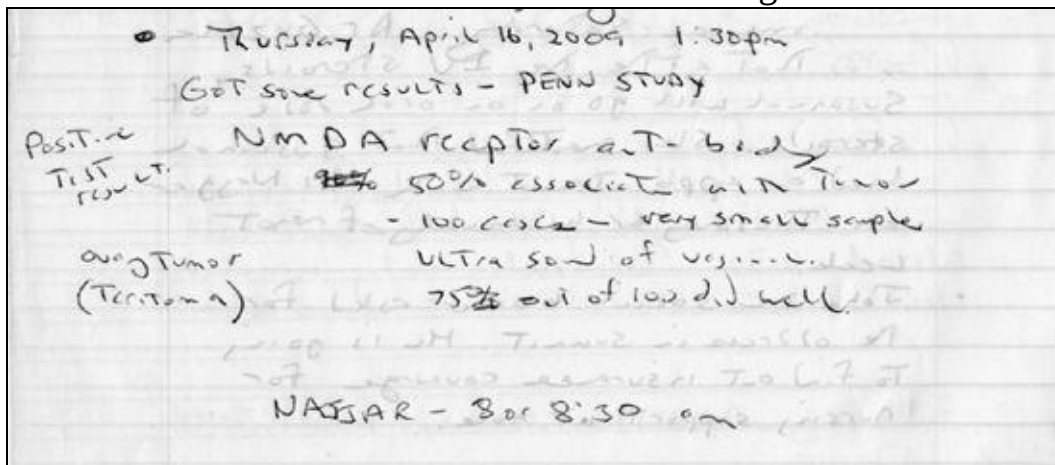 • Thursday, April 16, 2009 1:30pm
GOT some results - PENN STUDY
Positive Test result. NMDA receptor anti-body
90% 50% associated with Tumor
- 100 cases - very small sample
ovary Tumor Ultra sound of
(Teritoma) 75% out of 100 did well.
NAJJAR - 8 or 8:30 pm